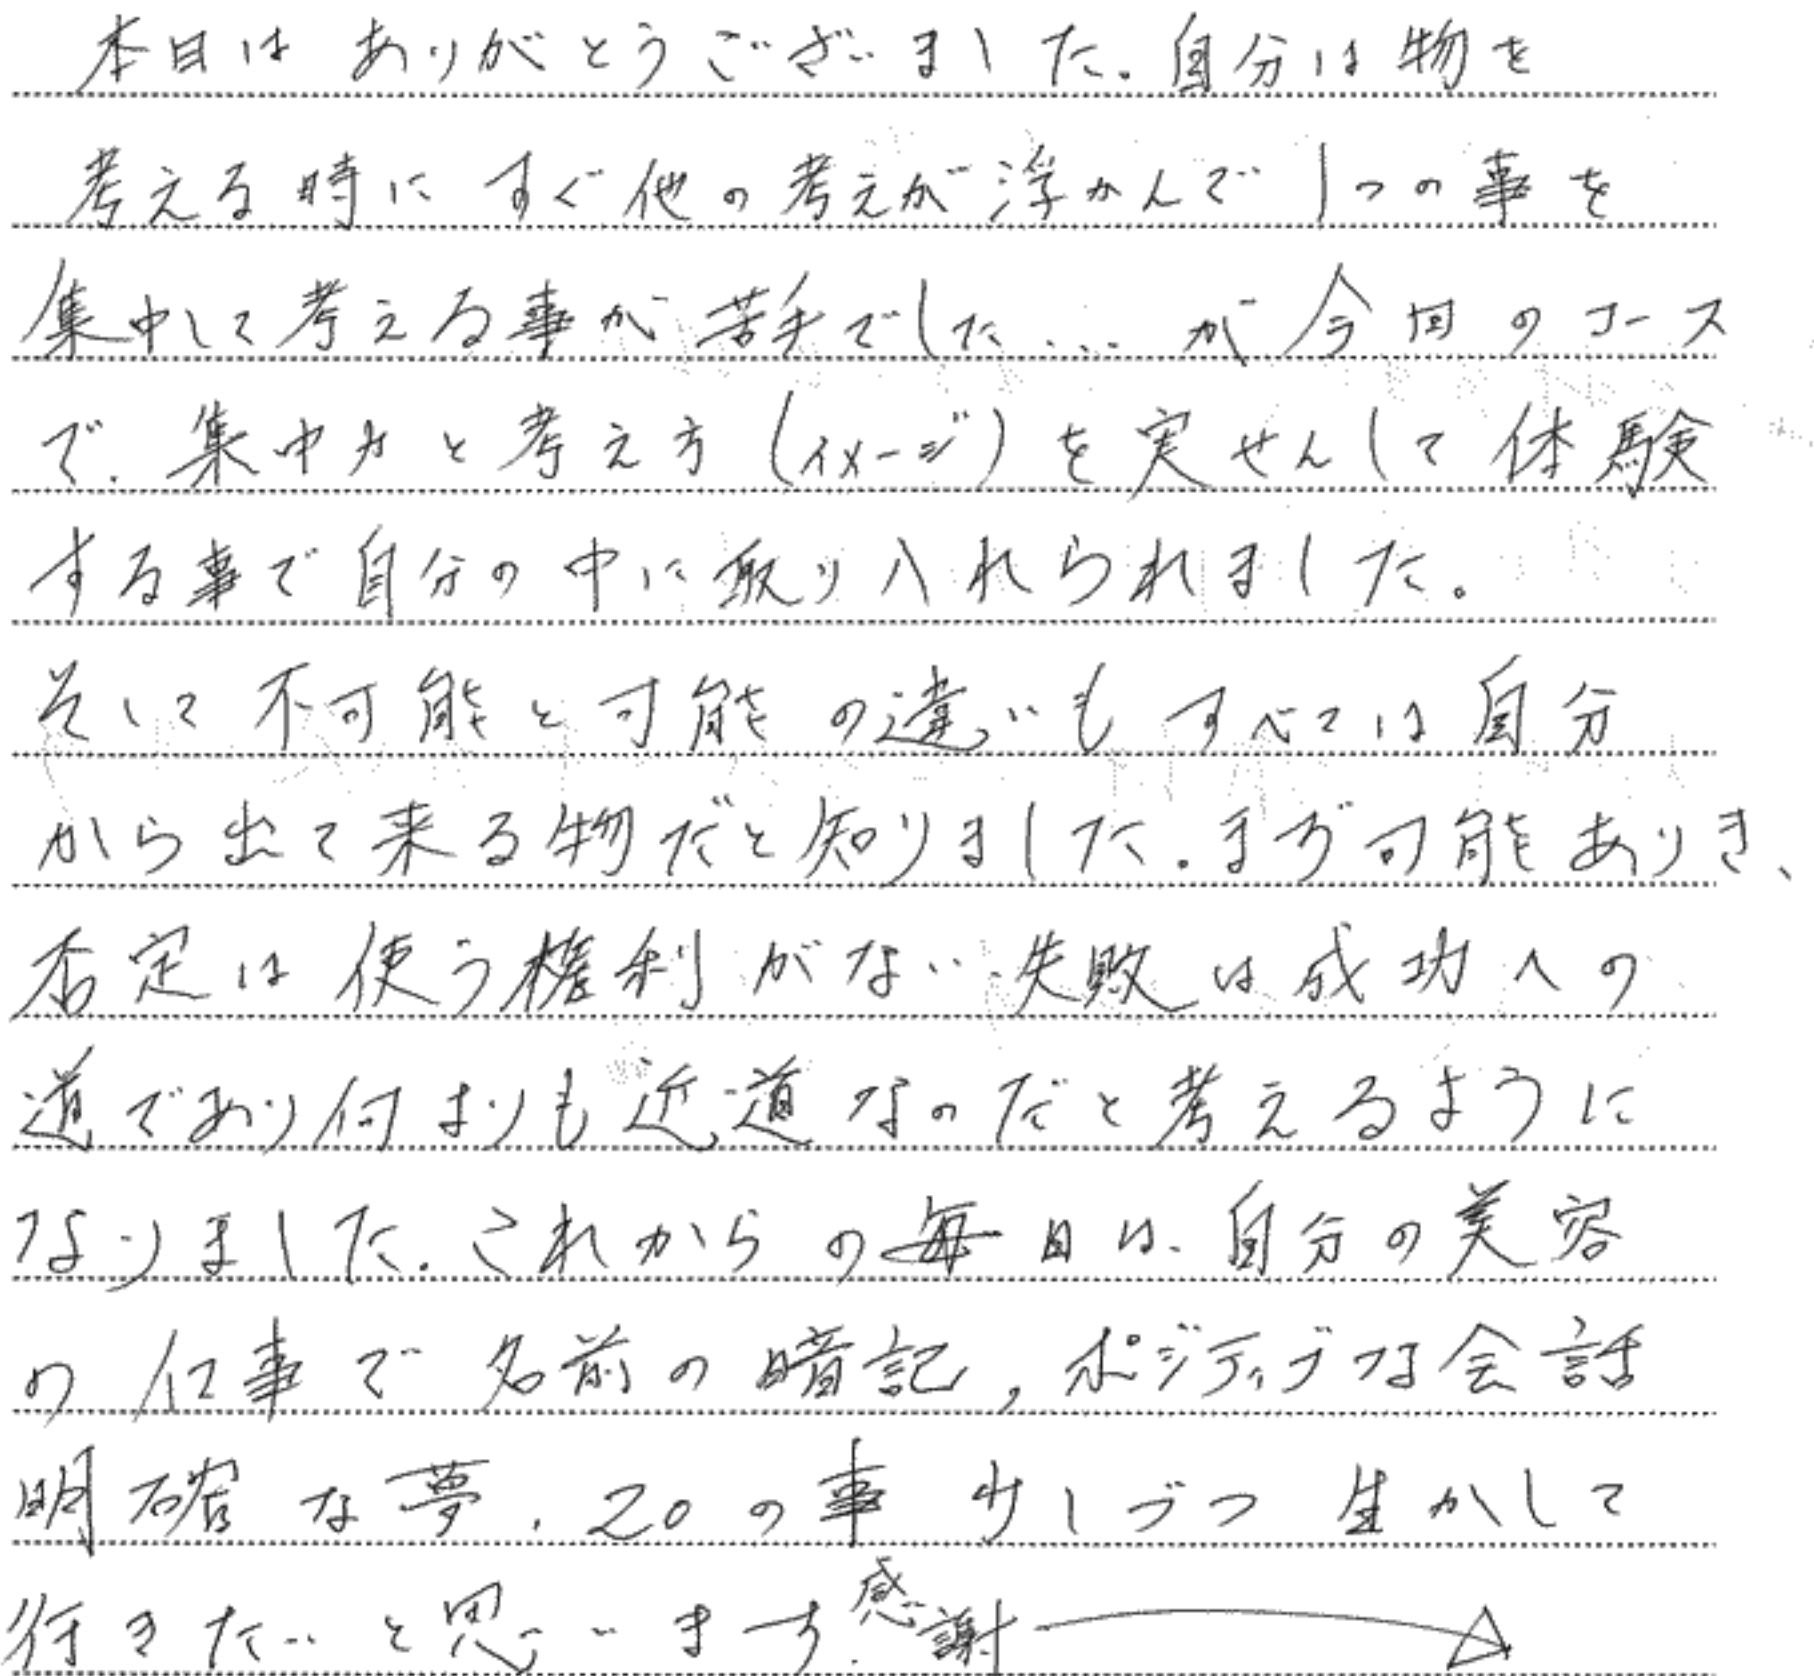 本日は ありがとうございました。自分は物を
考える時に すぐ他の考えが浮かんで 1つの事を
集中して考える事が苦手でした… が 今回のコース
で、集中力と考え方(イメージ)を実せんして体験
する事で自分の中に取り入れられました。
そして不可能と可能の違いも すべては自分
から出て来る物だと知りました。まず可能ありき、
否定は使う権利がない 失敗は成功への
道であり何よりも近道なのだと考えるように
なりました。これからの毎日は、自分の美容
の仕事で名前の暗記,ポジティブな会話
明確な夢、20の事 少しづつ 生かして
行きたいと思います。感謝